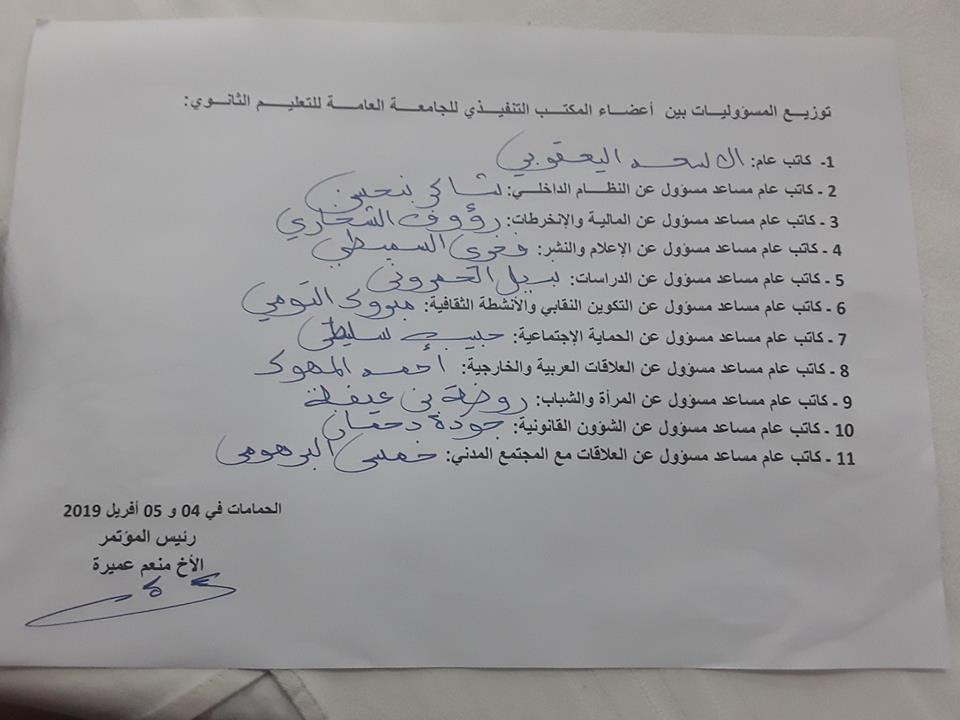 توزيع المسؤوليات بين أعضاء المكتب التنفيذي للجامعة العامة للتعليم الثانوي:
1- كاتب عام: الاسعد اليعقوبي
2 - كاتب عام مساعد مسؤول عن النظام الداخلي:
3 - كاتب عام مساعد مسؤول عن المالية والإنخرطات: رؤوف الشخاري
4 - كاتب عام مساعد مسؤول عن الإعلام والنشر: فخري السميطي
5 - كاتب عام مساعد مسؤول عن الدراسات: نبيل الحمروني
6 - كاتب عام مساعد مسؤول عن التكوين النقابي والأنشطة الثقافية: مبروك التومي
7 - كاتب عام مساعد مسؤول عن الحماية الإجتماعية: حبيب سليطي
8 - كاتب عام مساعد مسؤول عن العلاقات العربية والخارجية: أحمد المهوك
9 - كاتب عام مساعد مسؤول عن المرأة والشباب: روضة بن عيفة
10 - كاتب عام مساعد مسؤول عن الشؤون القانونية: جودة دحمان
11 - كاتب عام مساعد مسؤول عن العلاقات مع المجتمع المدني: البرهومي
الحمامات في 04 و 05 أفريل 2019
رئيس المؤتمر
الأخ منعم عميرة